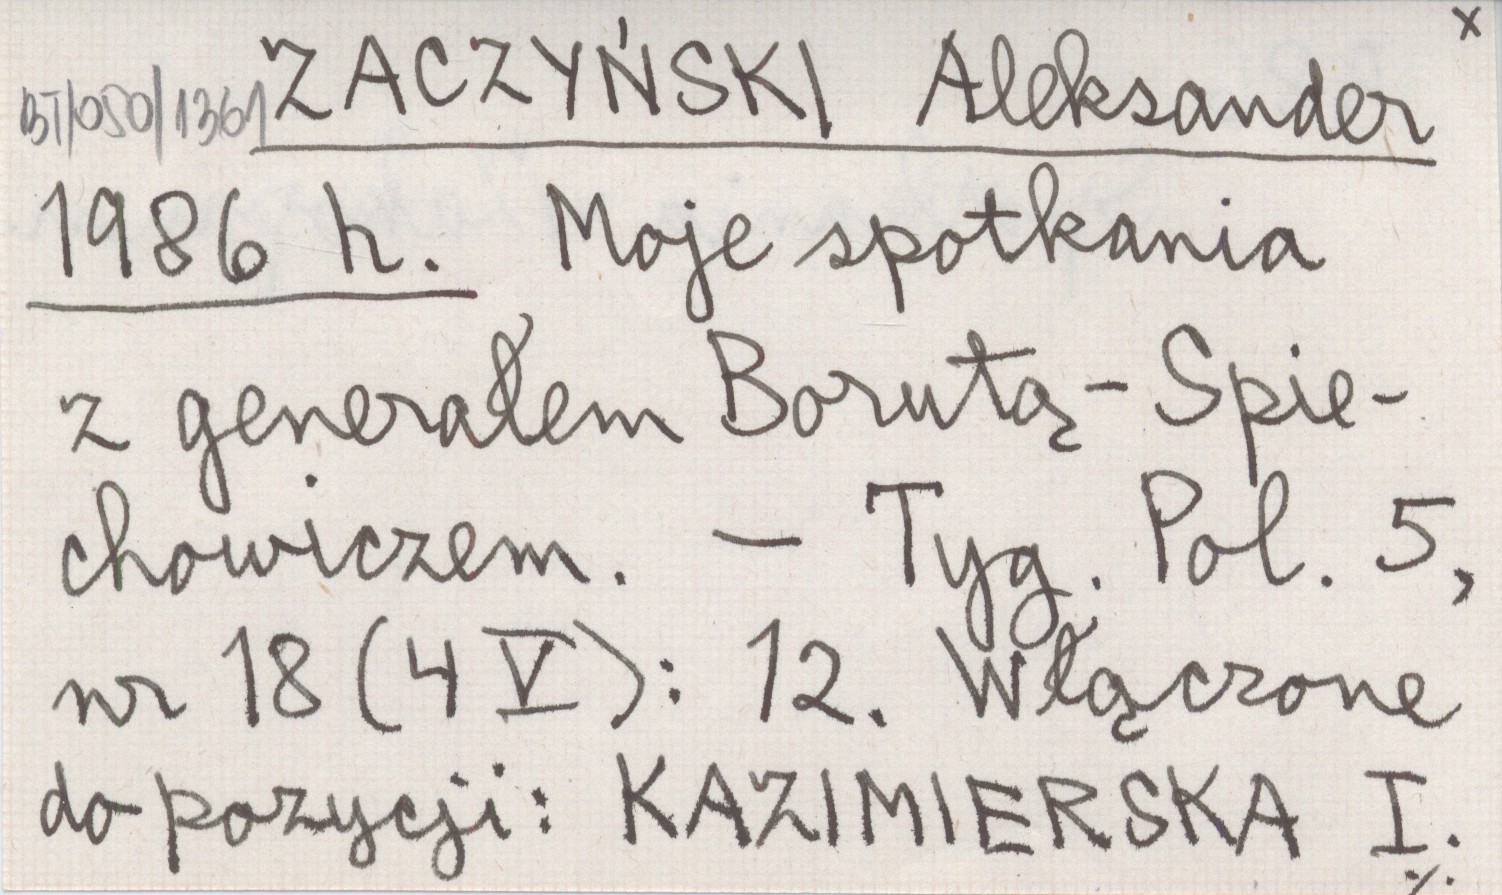 x
BT/050/1361 ZACZYŃSKI Aleksander
1986 h. Moje spotkania
z generałem Borutą-Spie-
chowiczem. – Tyg. Pol. 5,
nr 18 (4 V): 12. Włączone
do pozycji: KAZIMIERSKA I.
./.